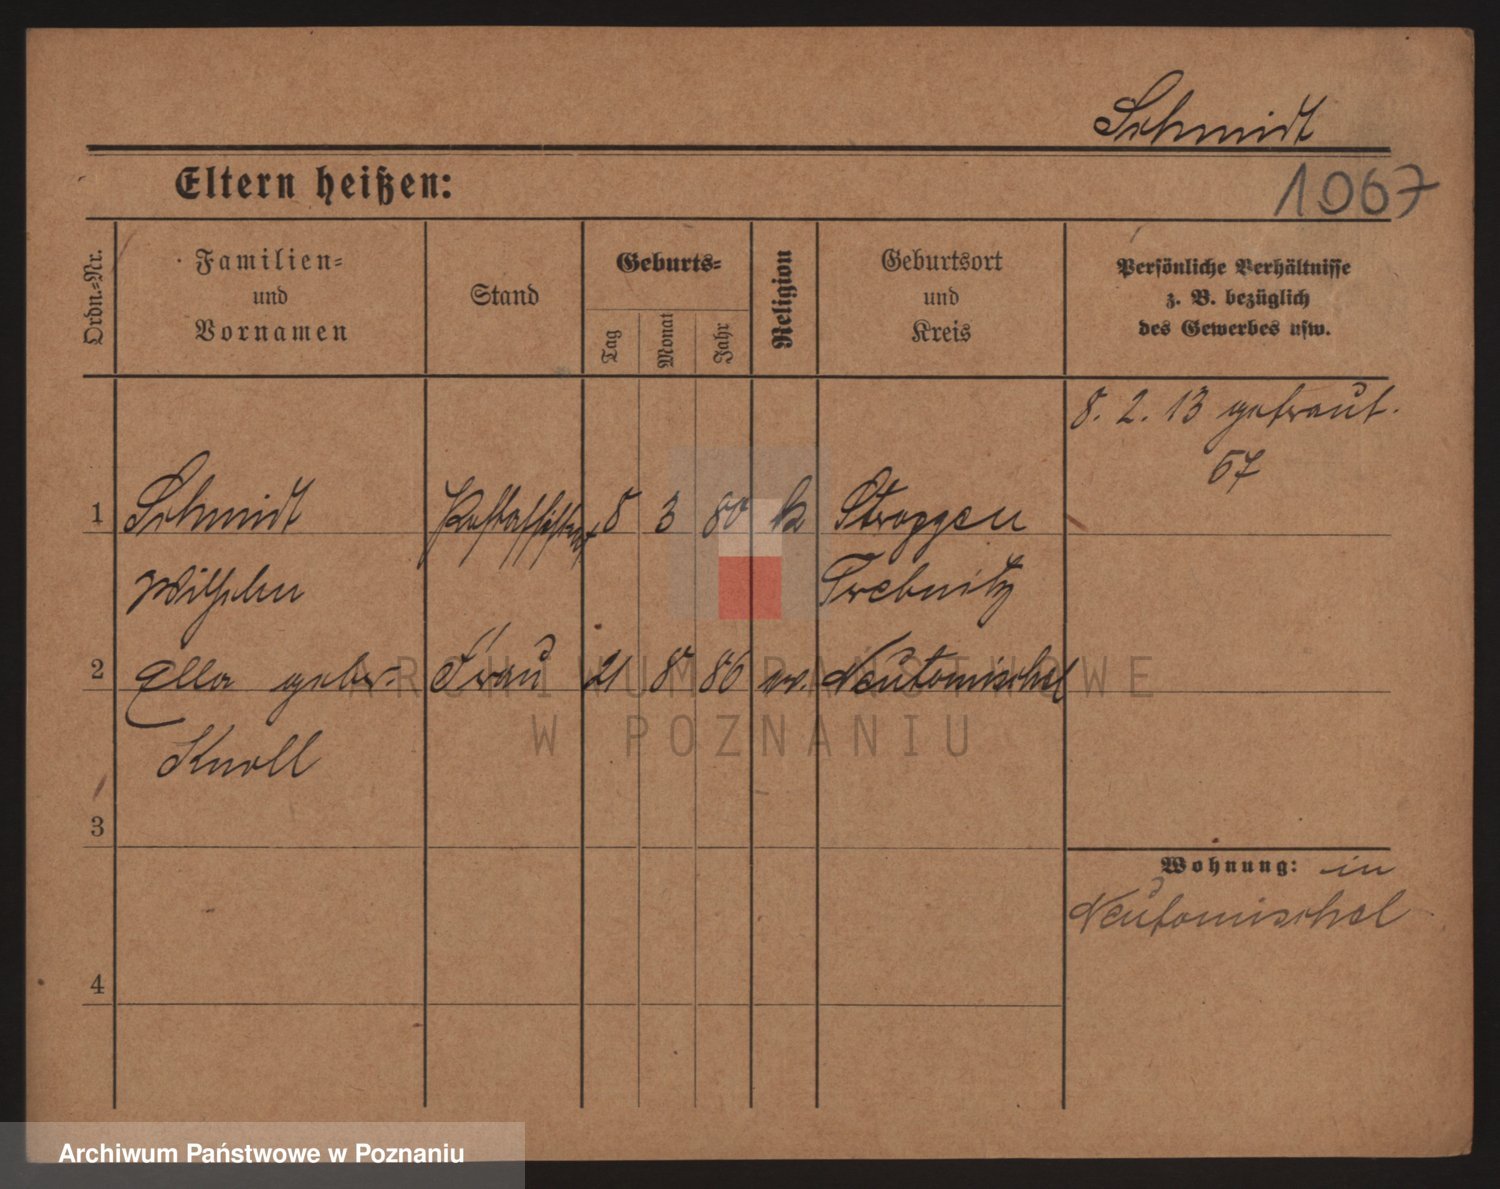 Schmidt
Eltern heißen:
1067
Ordn.-Nr.
Familien-
und
Vornamen
Stand
Geburts-
Tag
Monat
Jahr
Religion
Geburtsort
und
Kreis
Persönliche Verhältnisse
z. B. bezüglich
des Gewerbes usw.
8. 2. 13 getraut.
57
1 Schmidt Postassistent 8 3 80 k Stroppen
Wilhelm Trebnitz
2 Ella geb. Frau 21 8 86 ev. Neutomischel
Knoll
3
Wohnung: in
Neutomischel
4
ARCHIWUM PAŃSTWOWE
W POZNANIU
Archiwum Państwowe w Poznaniu